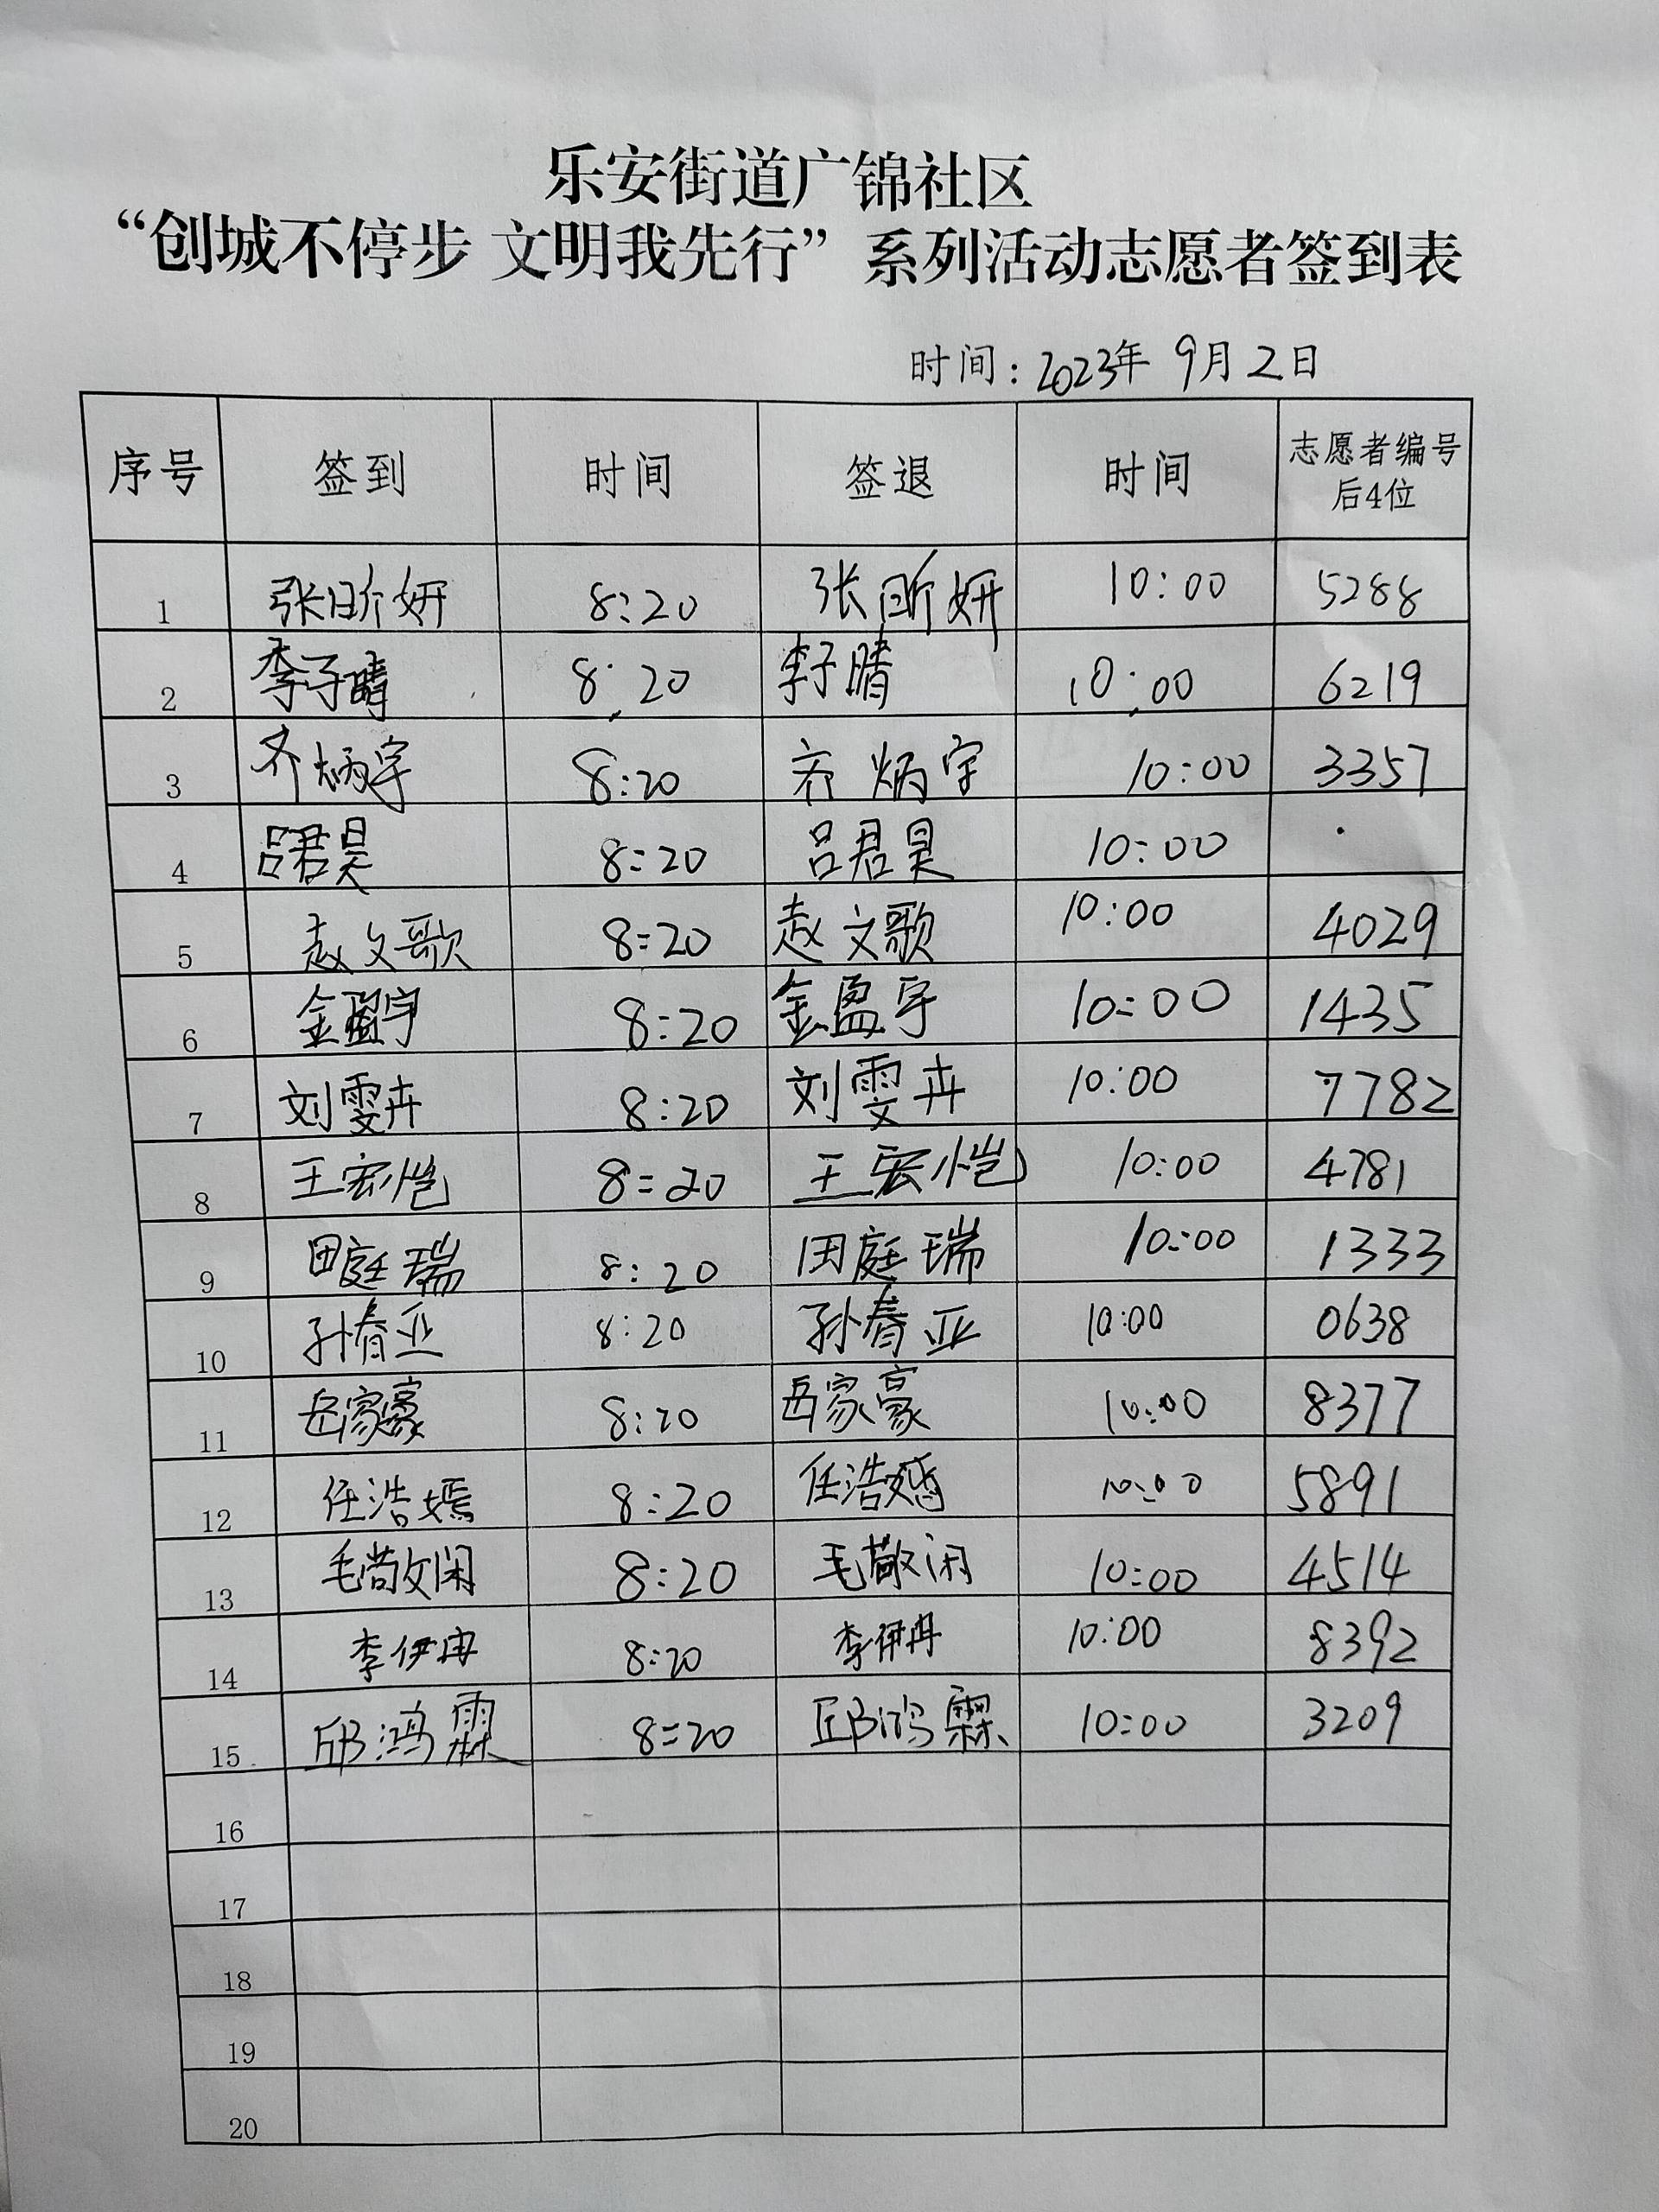 乐安街道广锦社区
“创城不停步 文明我先行” 系列活动志愿者签到表
时间：2023年 9月2日
序号 签到 时间 签退 时间 志愿者编号后4位
1 张昕妍 8:20 张昕妍 10:00 5288
2 李子晴 8:20 李子晴 10:00 6219
3 齐炳宇 8:20 齐炳宇 10:00 3357
4 吕君昊 8:20 吕君昊 10:00
5 赵文歌 8:20 赵文歌 10:00 4029
6 金盈宇 8:20 金盈宇 10:00 1435
7 刘雯卉 8:20 刘雯卉 10:00 7782
8 王宏恺 8:20 王宏恺 10:00 4781
9 田庭瑞 8:20 田庭瑞 10:00 1333
10 孙春亚 8:20 孙春亚 10:00 0638
11 岳家豪 8:20 岳家豪 10:00 8377
12 任浩嫣 8:20 任浩嫣 10:00 5891
13 毛敬闲 8:20 毛敬闲 10:00 4514
14 李伊冉 8:20 李伊冉 10:00 8392
15 邱鸿霖 8:20 邱鸿霖 10:00 3209
16
17
18
19
20